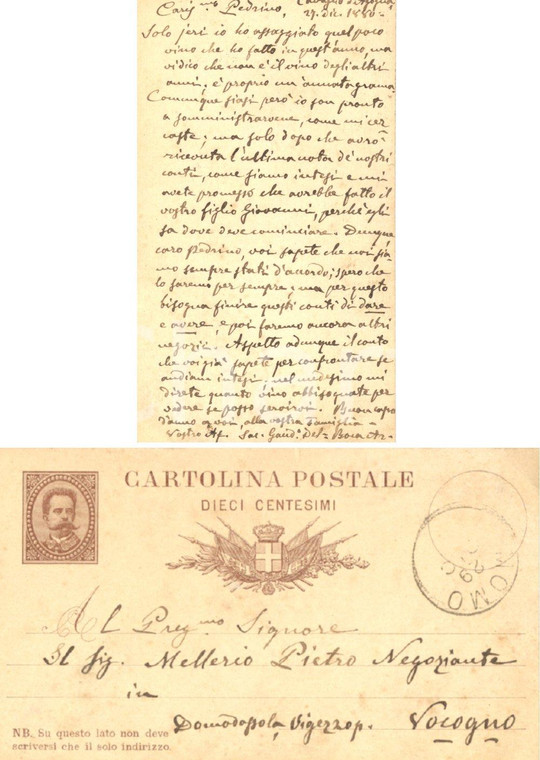 Car.mo Pedrino,
27. dic. 1880.
Solo jeri io ho assaggiato quel poco
vino che ho fatto in quest'anno, ma
vi dico che non è il vino degli altri
anni; è proprio un'annata grama
Comunque siasi però io son pronto
a somministrarvene, come mi cer
caste; ma solo dopo che avrò
ricevuta l'ultima nota de' nostri
conti, come siamo intesi e mi
avete promesso che avrebbe fatto il
vostro figlio Giovanni, perchè egli
sa dove deve cominciare. Dunque,
caro Pedrino, voi sapete che noi sia
mo sempre stati d'accordo; spero che
lo saremo per sempre; ma per questo
bisogna finire questi conti di dare
e avere, e poi faremo ancora altri
negozii. Aspetto adunque il conto
che voi già sapete per confrontare se
andiam intesi. nel medesimo mi
direte quanto vino abbisognate per
vedere se posso servirvi. Buon capo
d'anno a voi, alla vostra famiglia -
Vostro Af. Sac. Gaud. Del- Boca Ar-
CARTOLINA POSTALE
DIECI CENTESIMI
Al Preg.mo Signore
Il Sig. Mellerio Pietro Negoziante
in
Domodossola, Vigezzo p. Vocogno
NB. Su questo lato non deve
scriversi che il solo indirizzo.